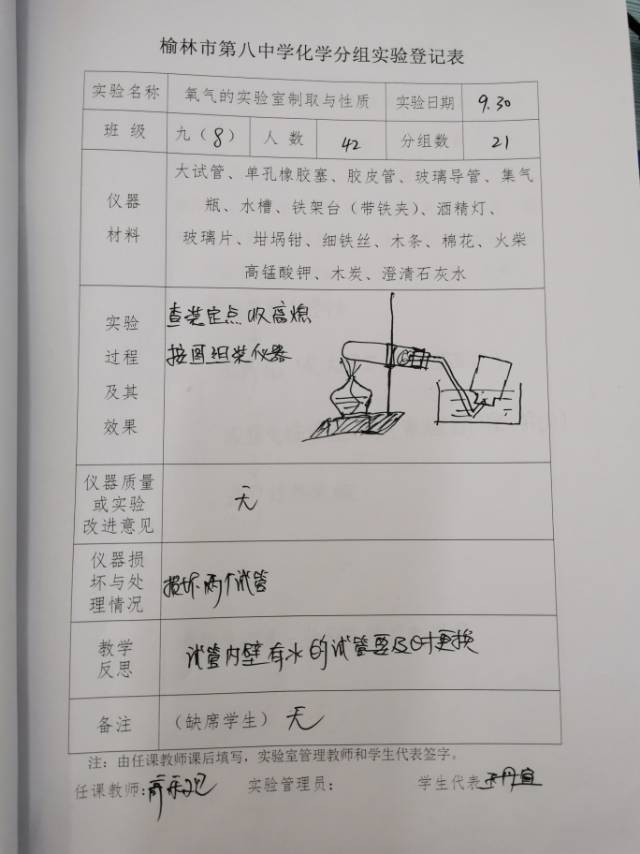 榆林市第八中学化学分组实验登记表
实验名称 氧气的实验室制取与性质 实验日期 9.30
班 级 九（8） 人 数 42 分组数 21
仪器
材料
大试管、单孔橡胶塞、胶皮管、玻璃导管、集气
瓶、水槽、铁架台（带铁夹）、酒精灯、
玻璃片、坩埚钳、细铁丝、木条、棉花、火柴
高锰酸钾、木炭、澄清石灰水
实验
过程
及其
效果
查装定点收离熄
按图组装仪器
仪器质量
或实验
改进意见
无
仪器损
坏与处
理情况
损坏两个试管
教学
反思
试管内壁有水的试管要及时更换
备注 （缺席学生）无
注：由任课教师课后填写，实验室管理教师和学生代表签字。
任课教师： 实验管理员： 学生代表